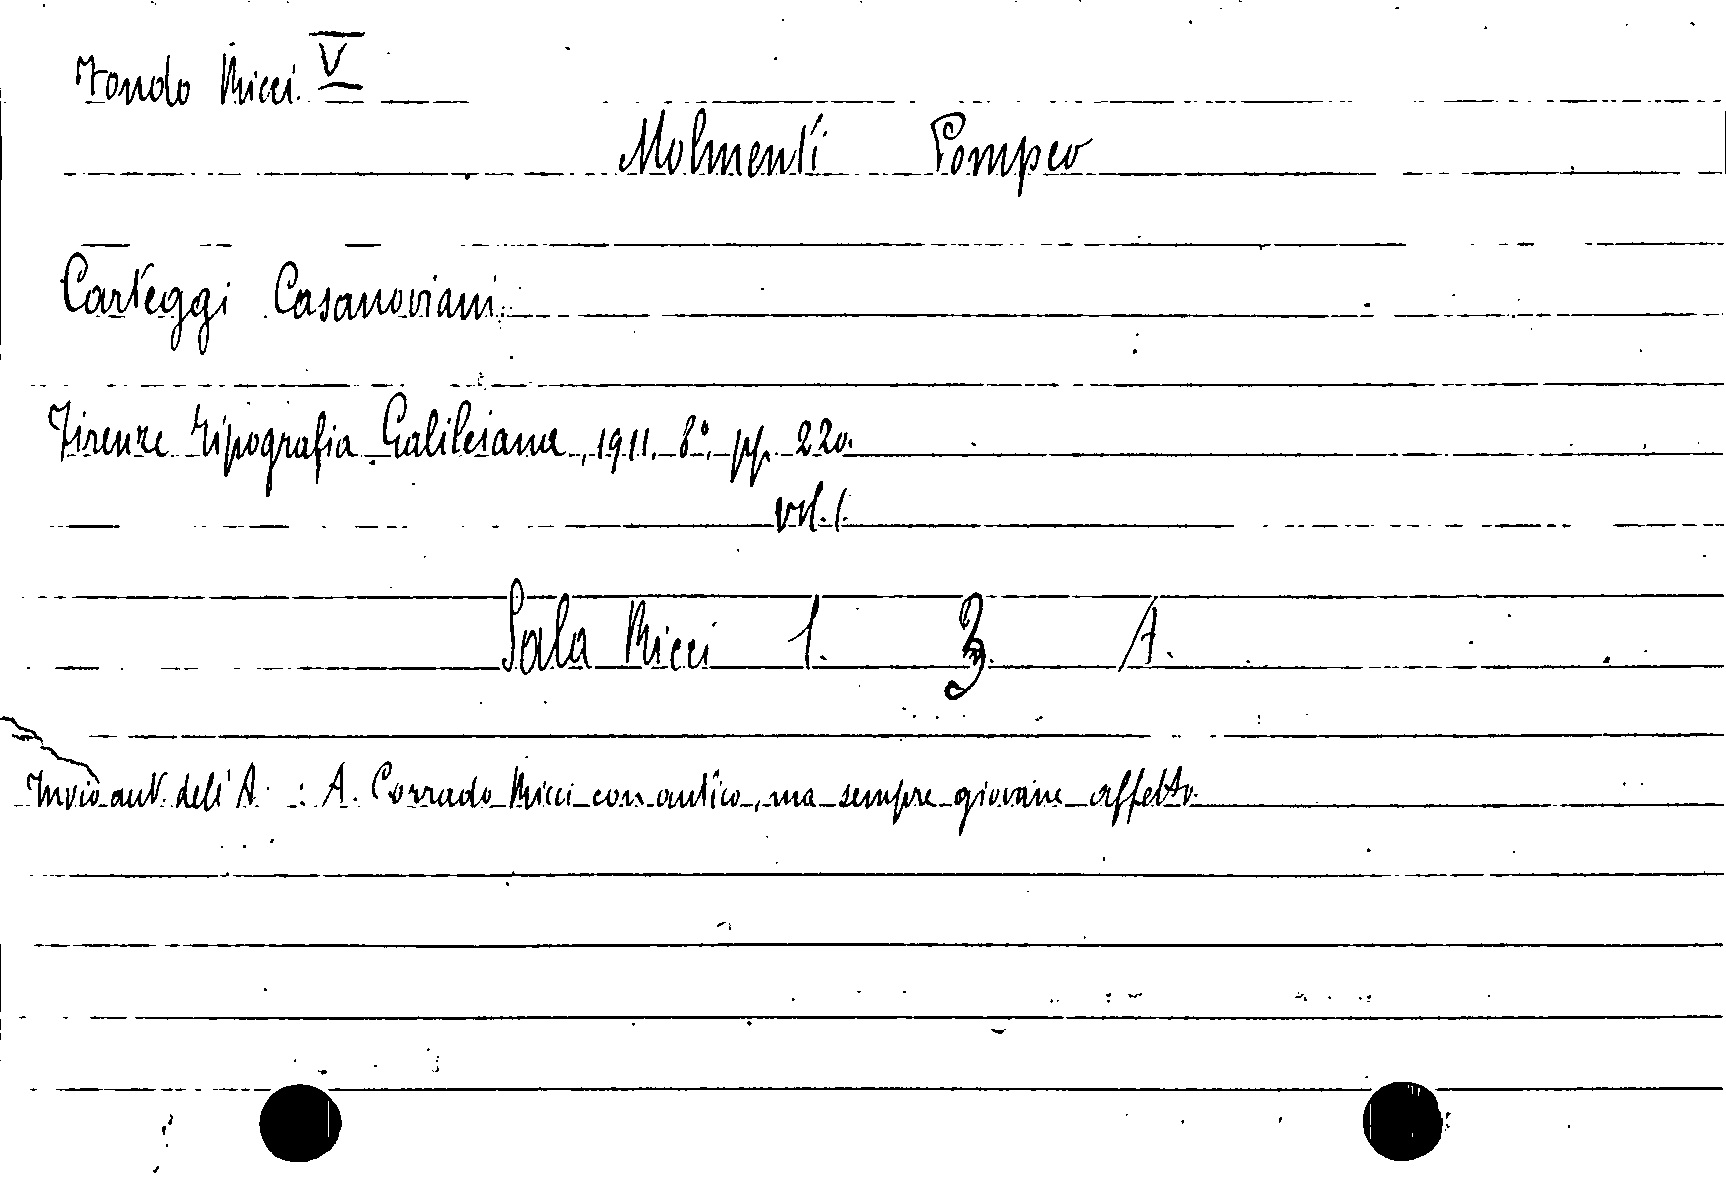 Fondo Ricci V
Molmenti Pompeo
Carteggi Casanoviani.
Firenze Tipografia Galileiana, 1911. 8°. pp. 220.
vol. 1.
Sala Ricci 1. 3. A.
Invio aut. dell'A. : A. Corrado Ricci con antico, ma sempre giovane affetto.